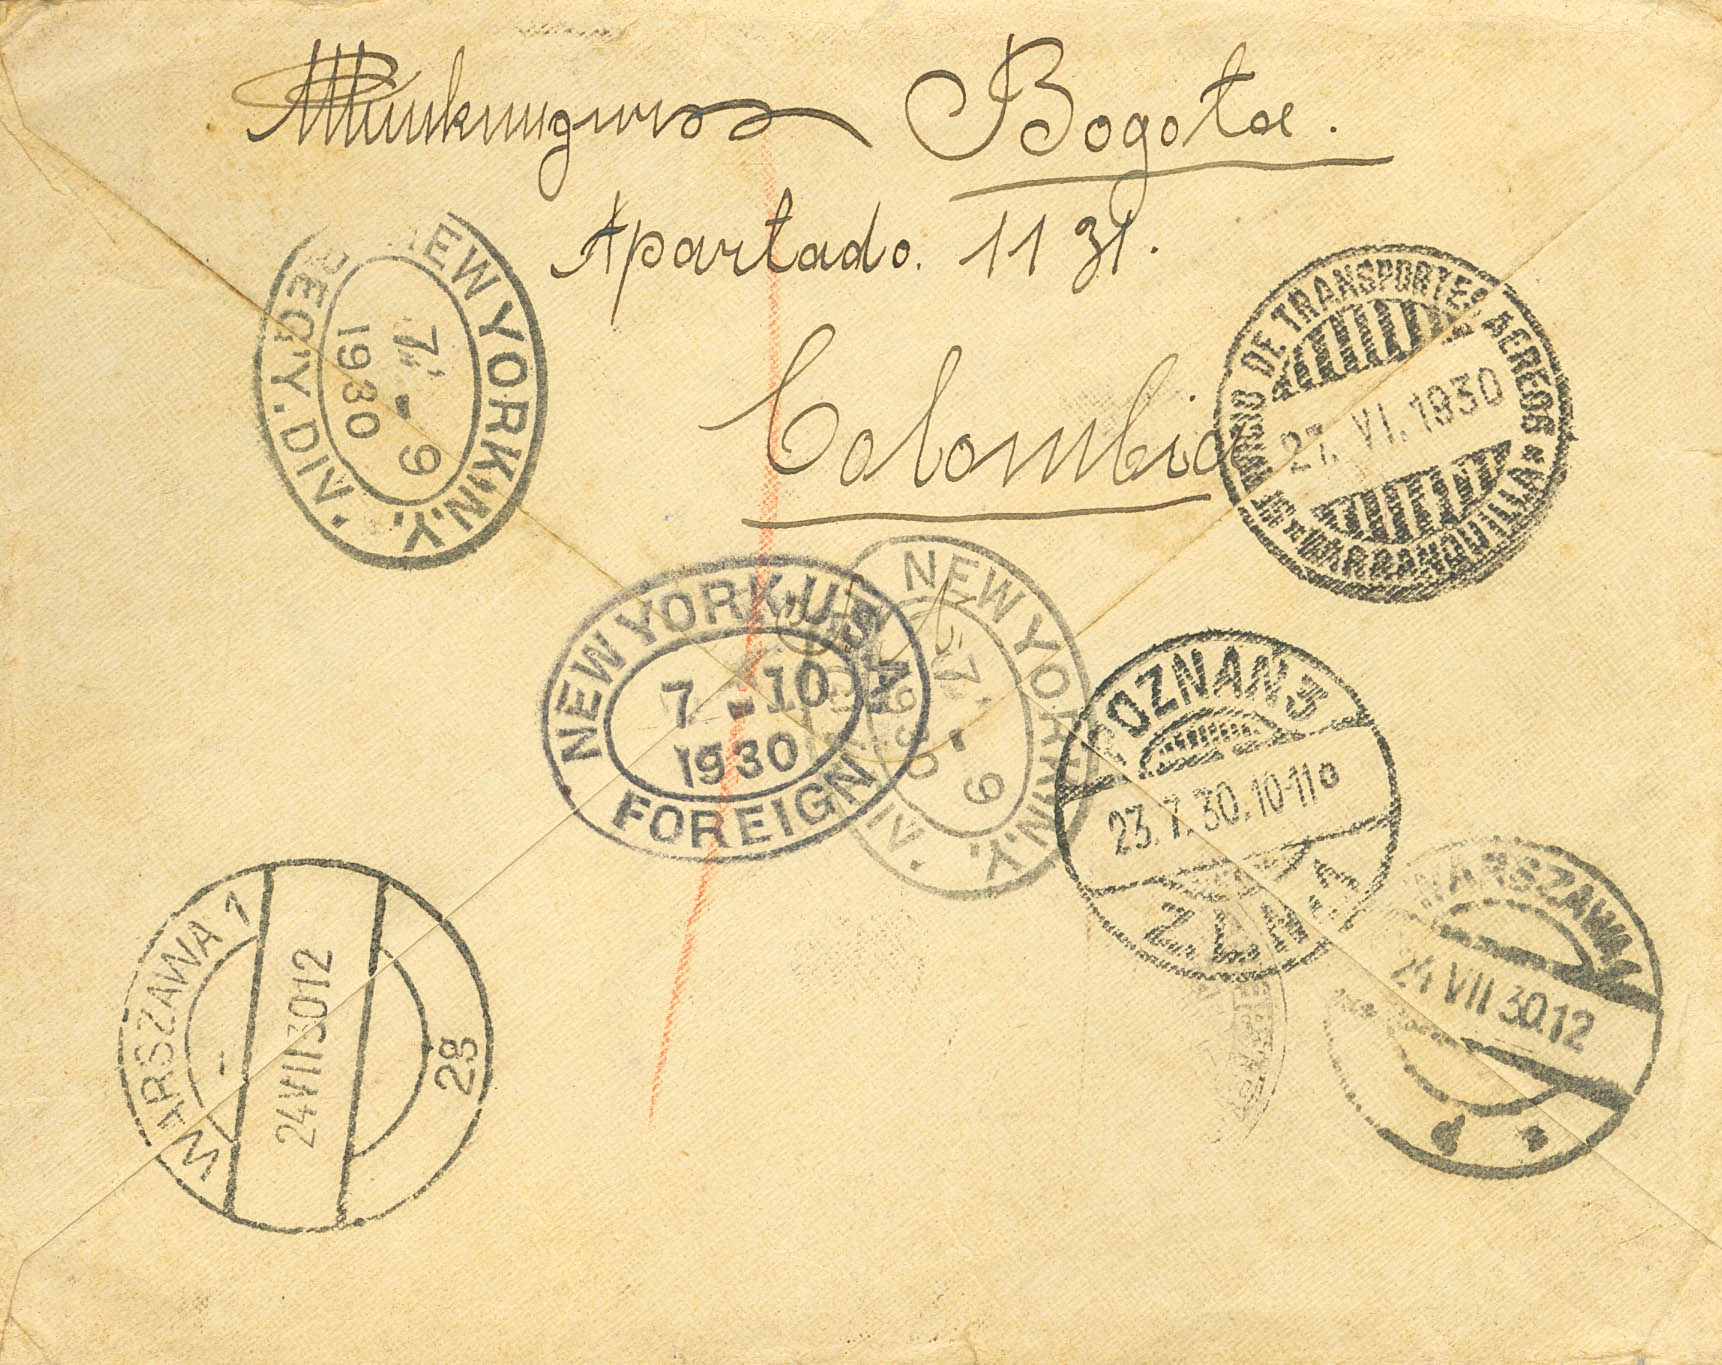 Bogotá.
Apartado. 1131.
Colombia
NEW YORK, N.Y.
REG'Y. DIV.
7 - 9
1930
SERVICIO DE TRANSPORTES AEREOS
27. VI. 1930
BARRANQUILLA
NEW YORK, U.S.A.
7 - 10
1930
FOREIGN
NEW YORK, N.Y.
7 - 9
1930
POZNAŃ 3
23.7.30.10-11
WARSZAWA 1
24 VII 30 12
2g
WARSZAWA
24 VII 30.12